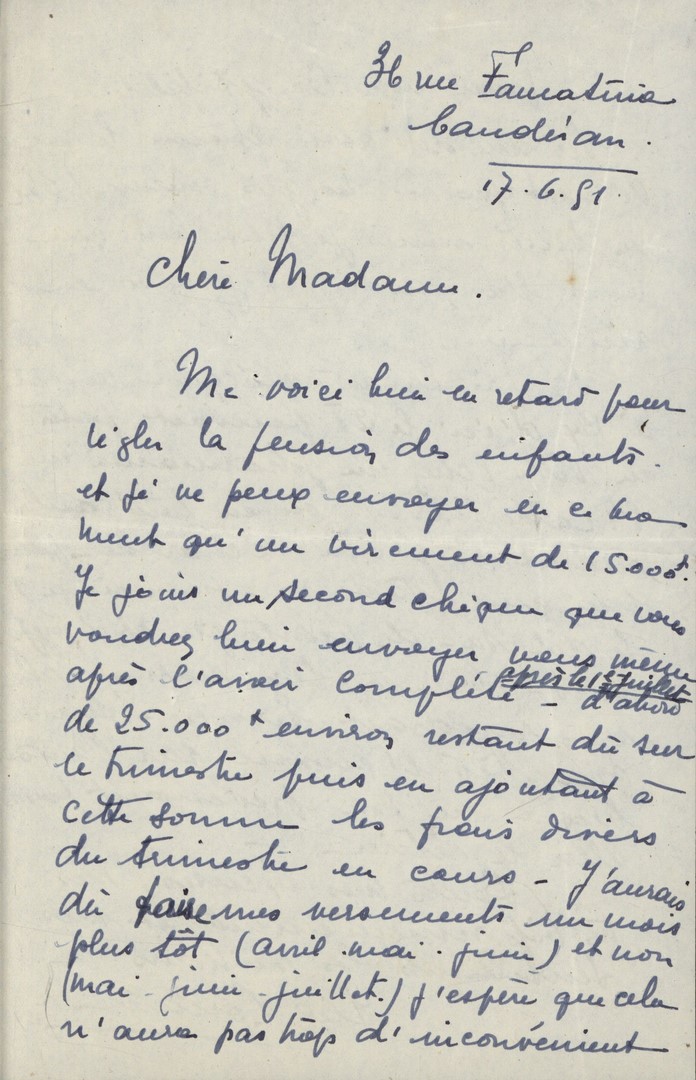 36 rue Famatina
Caudéran.
17.6.51.
Chère Madame.
Me voici bien en retard pour
régler la pension des enfants.
et je ne peux envoyer en ce mo
ment qu'un virement de 15.000f.
Je joins un second chèque que vous
voudrez bien envoyer vous même
après le 1er juillet
après l'avoir complété - d'abord
de 25.000f environ restant dû sur
le trimestre puis en ajoutant à
cette somme les frais divers
du trimestre en cours - J'aurais
dû faire mes versements un mois
plus tôt (avril.mai.juin) et non
(mai-juin-juillet.) j'espère que cela
n'aura pas trop d'inconvénient